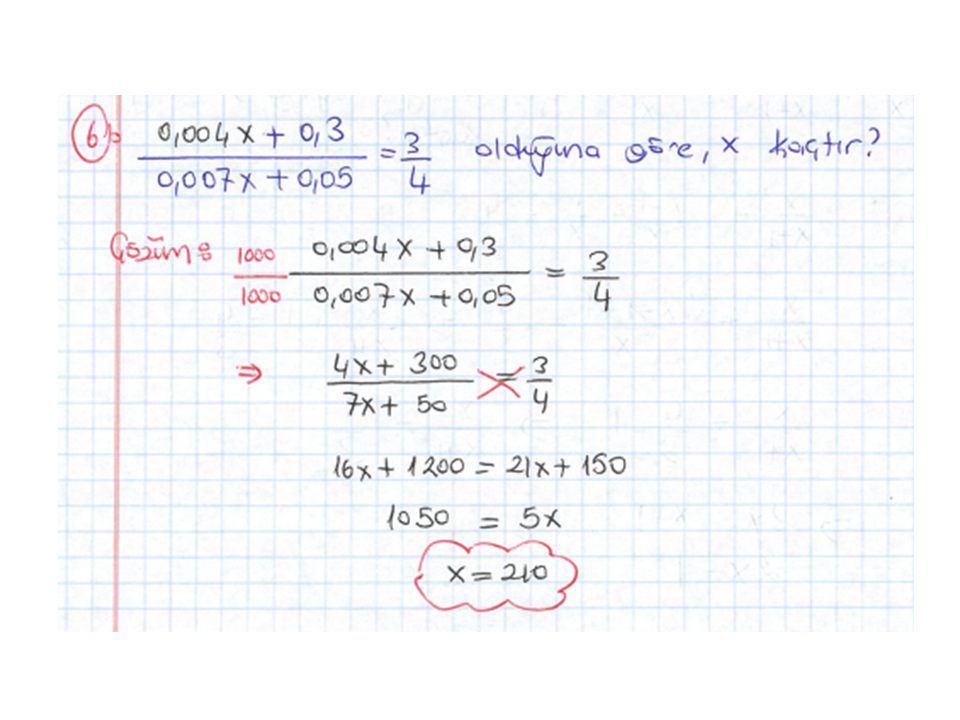 6) (0,004x + 0,3)/(0,007x + 0,05) = 3/4 olduğuna göre, x kaçtır?
Çözüm: 1000/1000 (0,004x + 0,3)/(0,007x + 0,05) = 3/4
⇒ (4x + 300)/(7x + 50) = 3/4
16x + 1200 = 21x + 150
1050 = 5x
x = 210